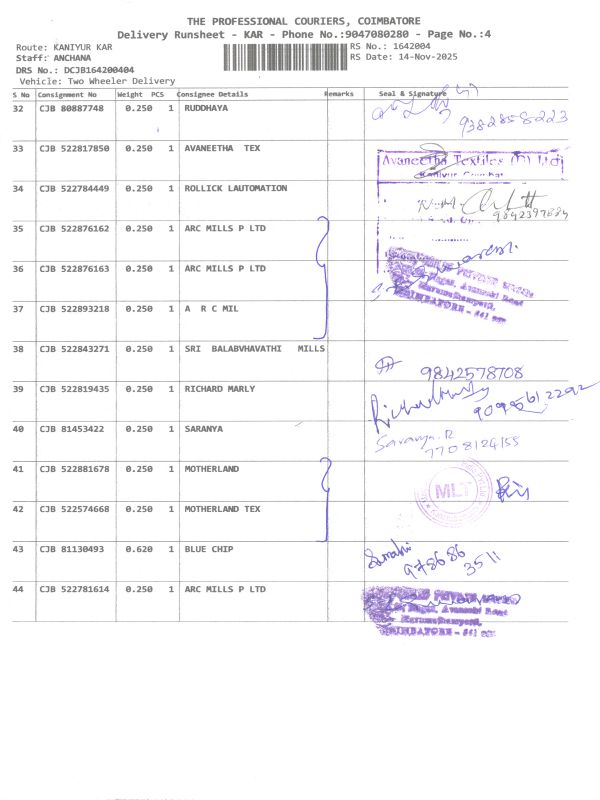 THE PROFESSIONAL COURIERS, COIMBATORE
Delivery Runsheet - KAR - Phone No.:9047080280 - Page No.:4
Route: KANIYUR KAR RS No.: 1642004
Staff: ANCHANA RS Date: 14-Nov-2025
DRS No.: DCJB164200404
Vehicle: Two Wheeler Delivery
S No Consignment No Weight PCS Consignee Details Remarks Seal & Signature
32 CJB 80887748 0.250 1 RUDDHAYA 9382858223
33 CJB 522817850 0.250 1 AVANEETHA TEX Avaneetha Textiles (P) Ltd
34 CJB 522784449 0.250 1 ROLLICK LAUTOMATION 9842397884
35 CJB 522876162 0.250 1 ARC MILLS P LTD
36 CJB 522876163 0.250 1 ARC MILLS P LTD
37 CJB 522893218 0.250 1 A R C MIL
38 CJB 522843271 0.250 1 SRI BALABVHAVATHI MILLS 9842578708
39 CJB 522819435 0.250 1 RICHARD MARLY 9095612292
40 CJB 81453422 0.250 1 SARANYA Saranya.R
7708124155
41 CJB 522881678 0.250 1 MOTHERLAND MLT
42 CJB 522574668 0.250 1 MOTHERLAND TEX
43 CJB 81130493 0.620 1 BLUE CHIP 978686
3511
44 CJB 522781614 0.250 1 ARC MILLS P LTD